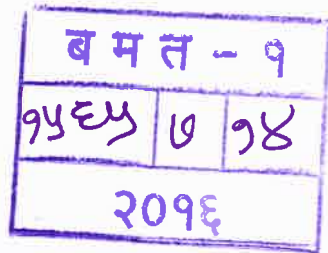 बमत - १
१५६५ ७ १४
२०१६